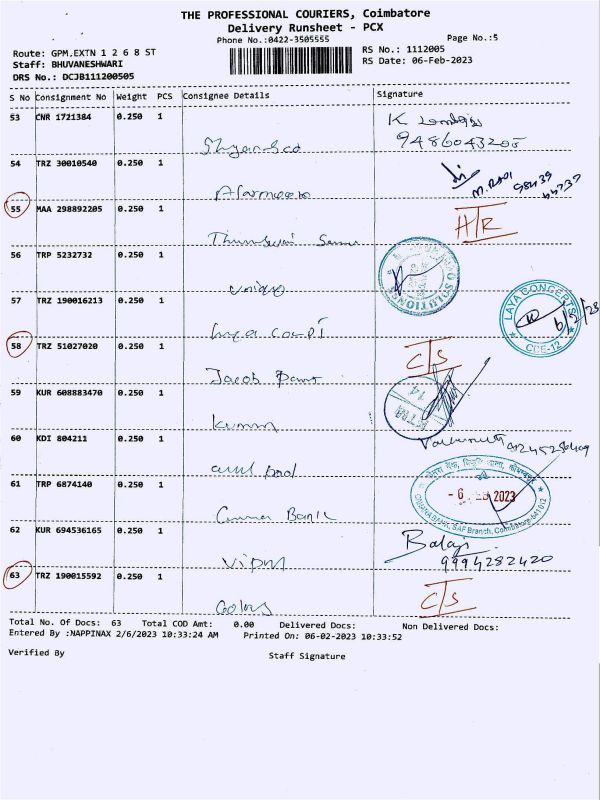 THE PROFESSIONAL COURIERS, Coimbatore
Delivery Runsheet - PCX
Phone No.:0422-3505555
Page No.:5
Route: GPM,EXTN 1 2 6 8 ST
RS No.: 1112005
Staff: BHUVANESHWARI
RS Date: 06-Feb-2023
DRS No.: DCJB111200505
S No Consignment No Weight PCS Consignee Details Signature
53 CNR 1721384 0.250 1
9486043205
54 TRZ 30010540 0.250 1
M. RAVI 98439
55 MAA 298892205 0.250 1
H/R
56 TRP 5232732 0.250 1
SOLUTIONS
57 TRZ 190016213 0.250 1
LAYA CONCEPTS
CBE-12
6/2/23
58 TRZ 51027020 0.250 1
C/S
Jacob
59 KUR 608883470 0.250 1
14
Kumar
60 KDI 804211 0.250 1
61 TRP 6874140 0.250 1
- 6 FEB 2023
CANARA BANK, SAF Branch, Coimbatore-641012
Canara Bank
62 KUR 694536165 0.250 1
Balaji
9994282420
Vipul
63 TRZ 190015592 0.250 1
C/S
Colors
Total No. Of Docs: 63 Total COD Amt: 0.00 Delivered Docs: Non Delivered Docs:
Entered By :NAPPINAX 2/6/2023 10:33:24 AM Printed On: 06-02-2023 10:33:52
Verified By Staff Signature